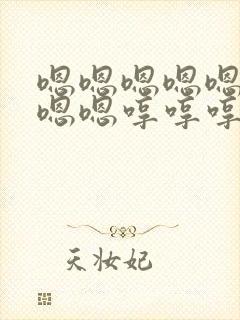 嗯嗯嗯嗯嗯
嗯嗯哼哼哼
天妆妃